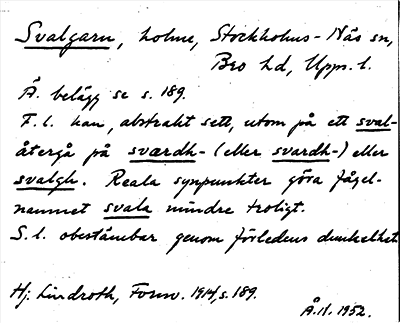 Svalgarn, holme, Stockholms-Näs sn,
Bro hd, Upps. l.
Ä. belägg se s. 189.
F. l. kan, abstrakt sett, utom på ett sval-
återgå på sværdh- (eller svardh-) eller
svalgh. Reala synpunkter göra fågel-
namnet svala mindre troligt.
S. l. obestämbar genom förledens dunkelhet
Hj. Lindroth, Fornv. 1914, s. 189.
Å. H. 1952.